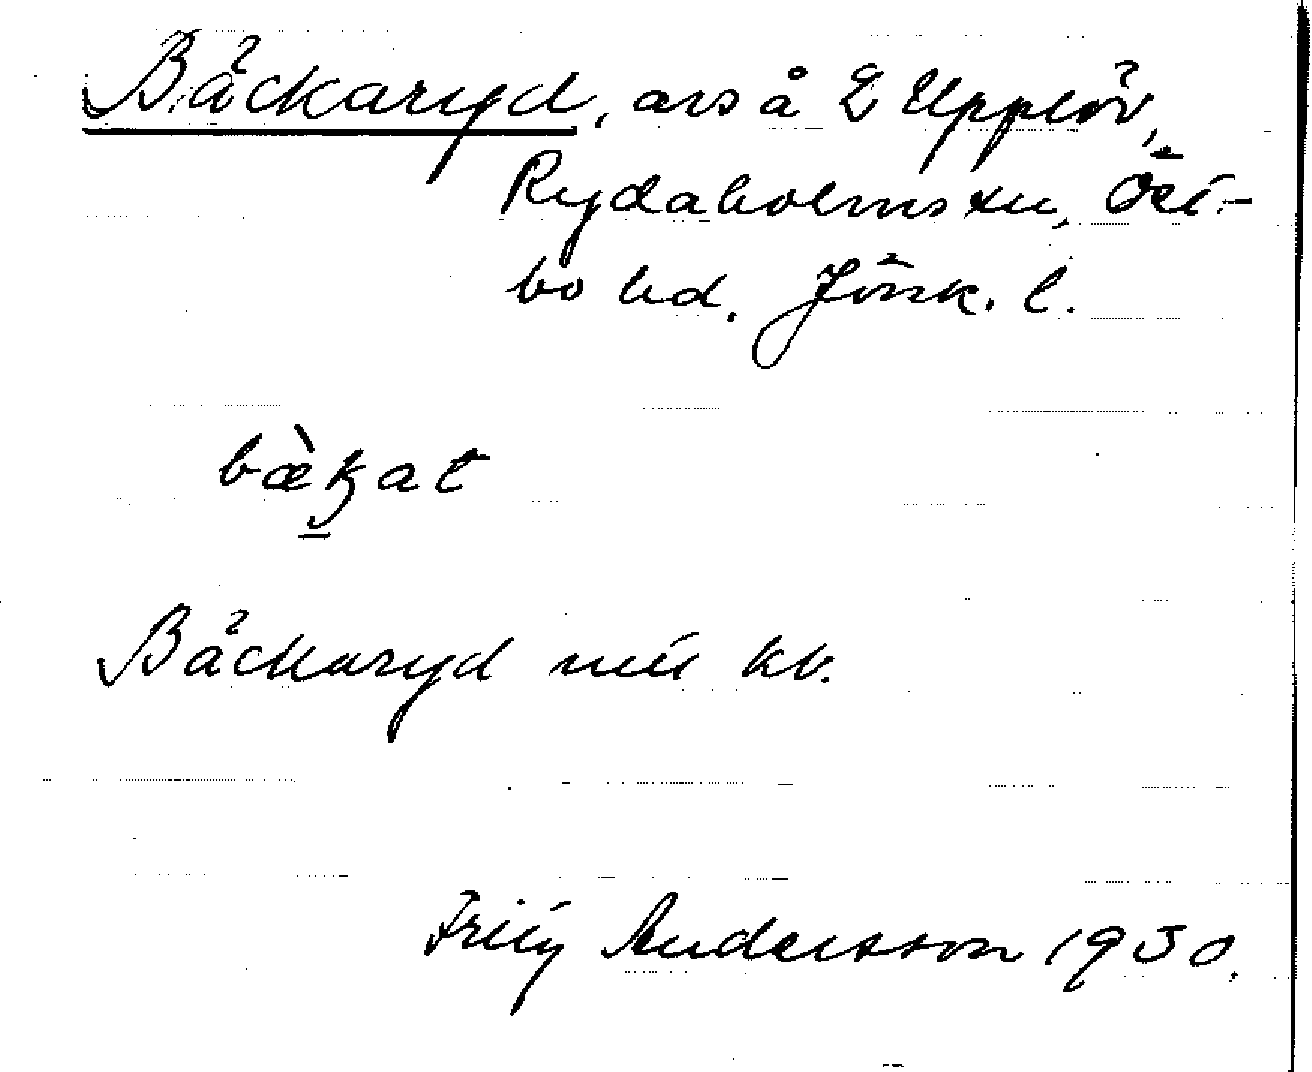 Bäckaryd, avs å L Upplöv,
Rydaholms sn, Öst-
bo hd. Jönk. l.
bæ̀kat
Bäckaryd mtl kb.
Fritz Andersson 1930.